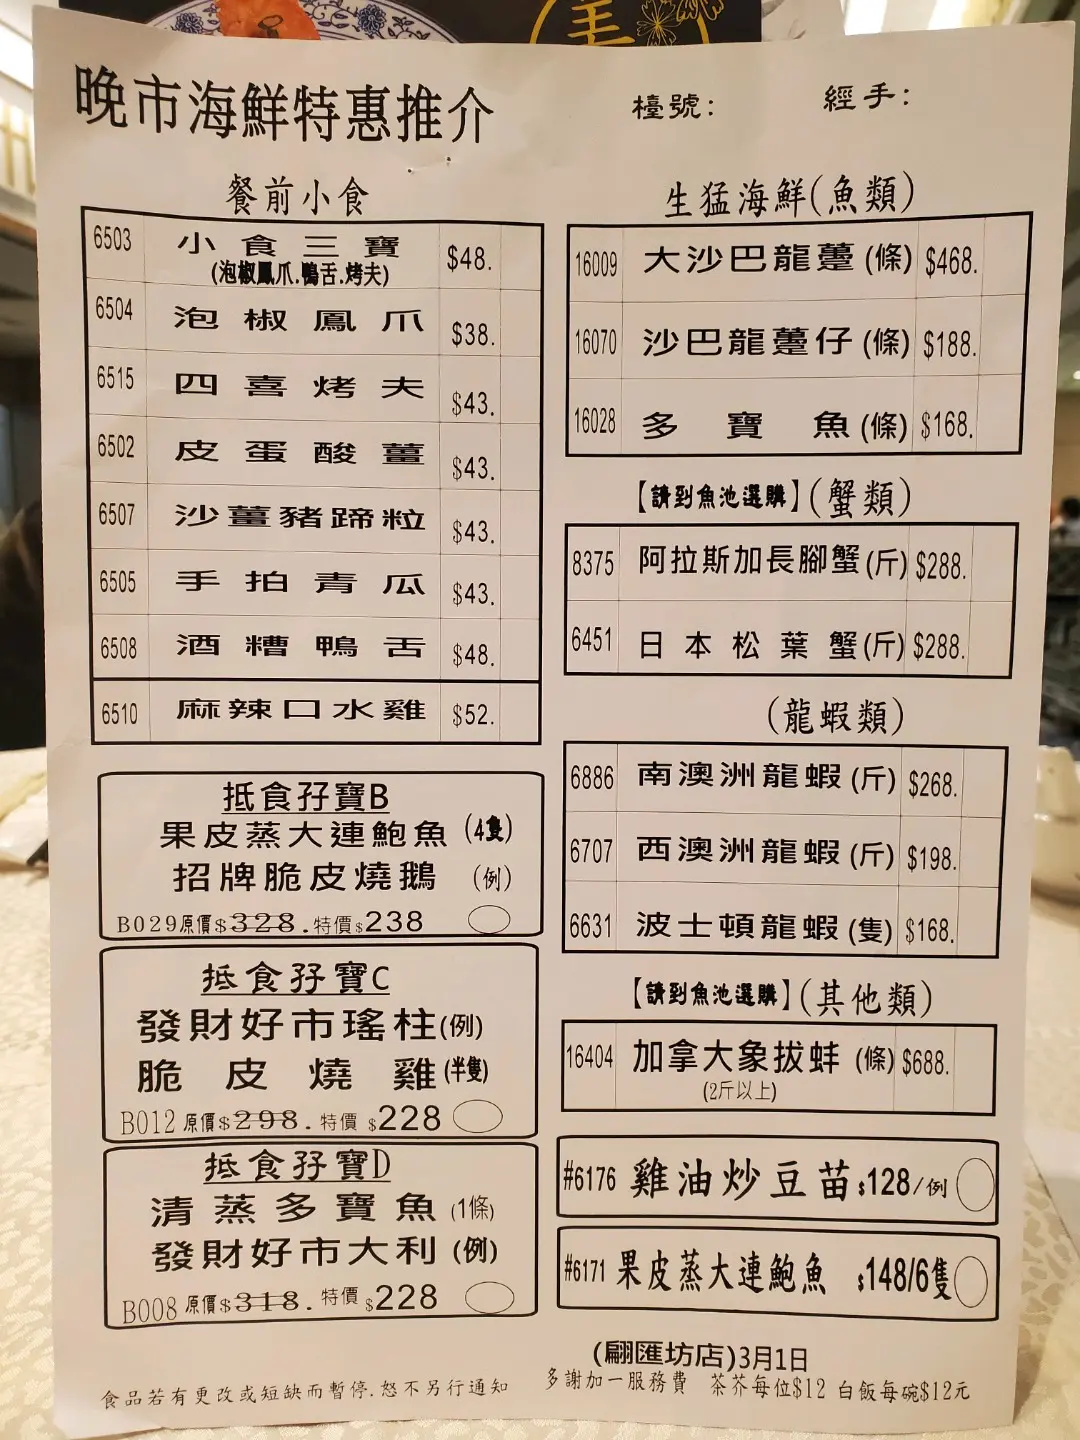 美
晚市海鮮特惠推介
檯號:
經手:
餐前小食
6503 小食三寶 $48.
(泡椒鳳爪.鴨舌.烤夫)
6504 泡椒鳳爪 $38.
6515 四喜烤夫 $43.
6502 皮蛋酸薑 $43.
6507 沙薑豬蹄粒 $43.
6505 手拍青瓜 $43.
6508 酒糟鴨舌 $48.
6510 麻辣口水雞 $52.
抵食孖寶B
果皮蒸大連鮑魚 (4隻)
招牌脆皮燒鵝 (例)
B029原價$328.特價$238
抵食孖寶C
發財好市瑤柱(例)
脆皮燒雞(半隻)
B012 原價$298.特價 $228
抵食孖寶D
清蒸多寶魚 (1條)
發財好市大利 (例)
B008 原價$318.特價 $228
食品若有更改或短缺而暫停.恕不另行通知
生猛海鮮(魚類)
16009 大沙巴龍躉(條) $468.
16070 沙巴龍躉仔(條) $188.
16028 多寶魚(條) $168.
【請到魚池選購】(蟹類)
8375 阿拉斯加長腳蟹(斤) $288.
6451 日本松葉蟹(斤) $288.
(龍蝦類)
6886 南澳洲龍蝦(斤) $268.
6707 西澳洲龍蝦(斤) $198.
6631 波士頓龍蝦(隻) $168.
【請到魚池選購】(其他類)
16404 加拿大象拔蚌 (條) $688.
(2斤以上)
#6176 雞油炒豆苗 $128/例
#6171 果皮蒸大連鮑魚 $148/6隻
(翩匯坊店)3月1日
多謝加一服務費 茶芥每位$12 白飯每碗$12元